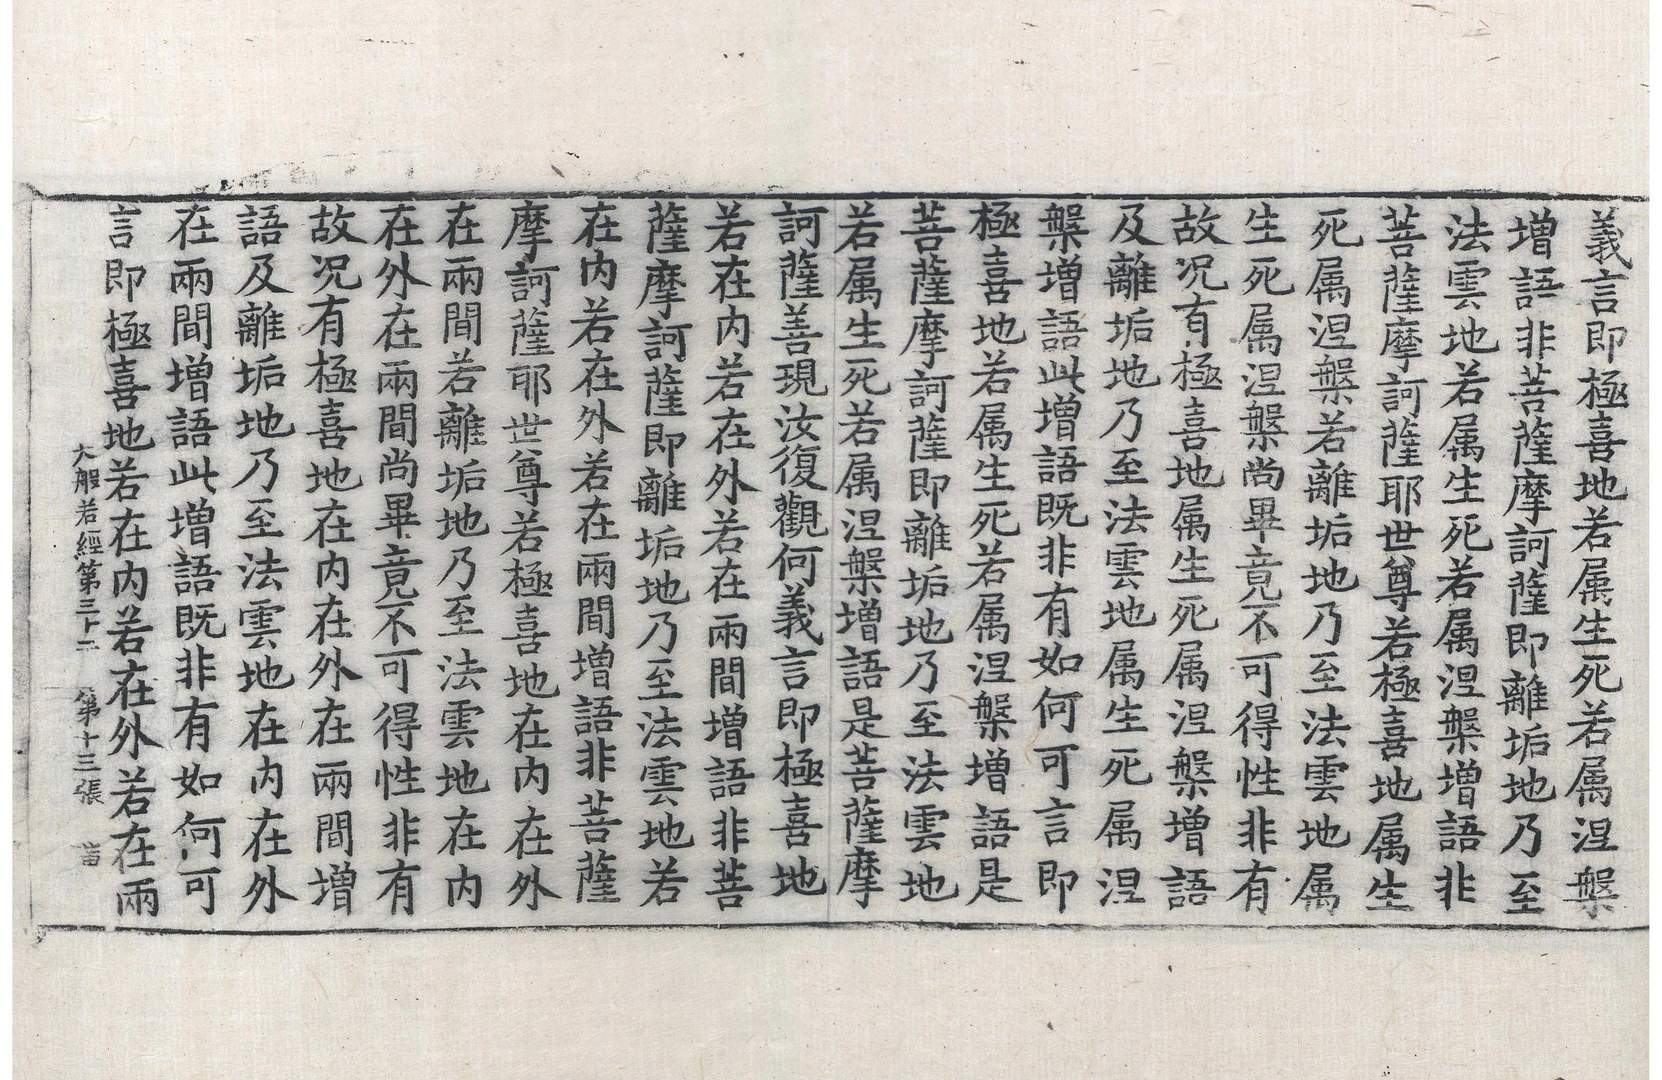 義言即極喜地若属生死若属涅槃
增語非菩薩摩訶薩即離垢地乃至
法雲地若属生死若属涅槃增語非
菩薩摩訶薩耶世尊若極喜地属生
死属涅槃若離垢地乃至法雲地属
生死属涅槃尚畢竟不可得性非有
故况有極喜地属生死属涅槃增語
及離垢地乃至法雲地属生死属涅
槃增語此增語既非有如何可言即
極喜地若属生死若属涅槃增語是
菩薩摩訶薩即離垢地乃至法雲地
若属生死若属涅槃增語是菩薩摩
訶薩善現汝復觀何義言即極喜地
若在内若在外若在兩間增語非菩
薩摩訶薩即離垢地乃至法雲地若
在内若在外若在兩間增語非菩薩
摩訶薩耶世尊若極喜地在内在外
在兩間若離垢地乃至法雲地在内
在外在兩間尚畢竟不可得性非有
故况有極喜地在内在外在兩間增
語及離垢地乃至法雲地在内在外
在兩間增語此增語既非有如何可
言即極喜地若在内若在外若在兩
大般若經第三十二 第十三張